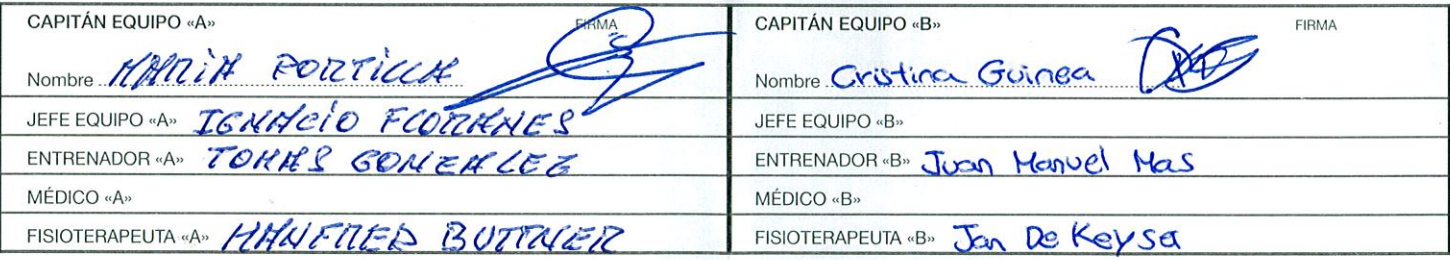 CAPITÁN EQUIPO «A» FIRMA
Nombre MARIA PORTILLA
JEFE EQUIPO «A» IGNACIO FLORANES
ENTRENADOR «A» TOMAS GONZALEZ
MÉDICO «A»
FISIOTERAPEUTA «A» MANFRED BUTTNER
CAPITÁN EQUIPO «B» FIRMA
Nombre Cristina Guinea
JEFE EQUIPO «B»
ENTRENADOR «B» Juan Manuel Mas
MÉDICO «B»
FISIOTERAPEUTA «B» Jan De Keyser